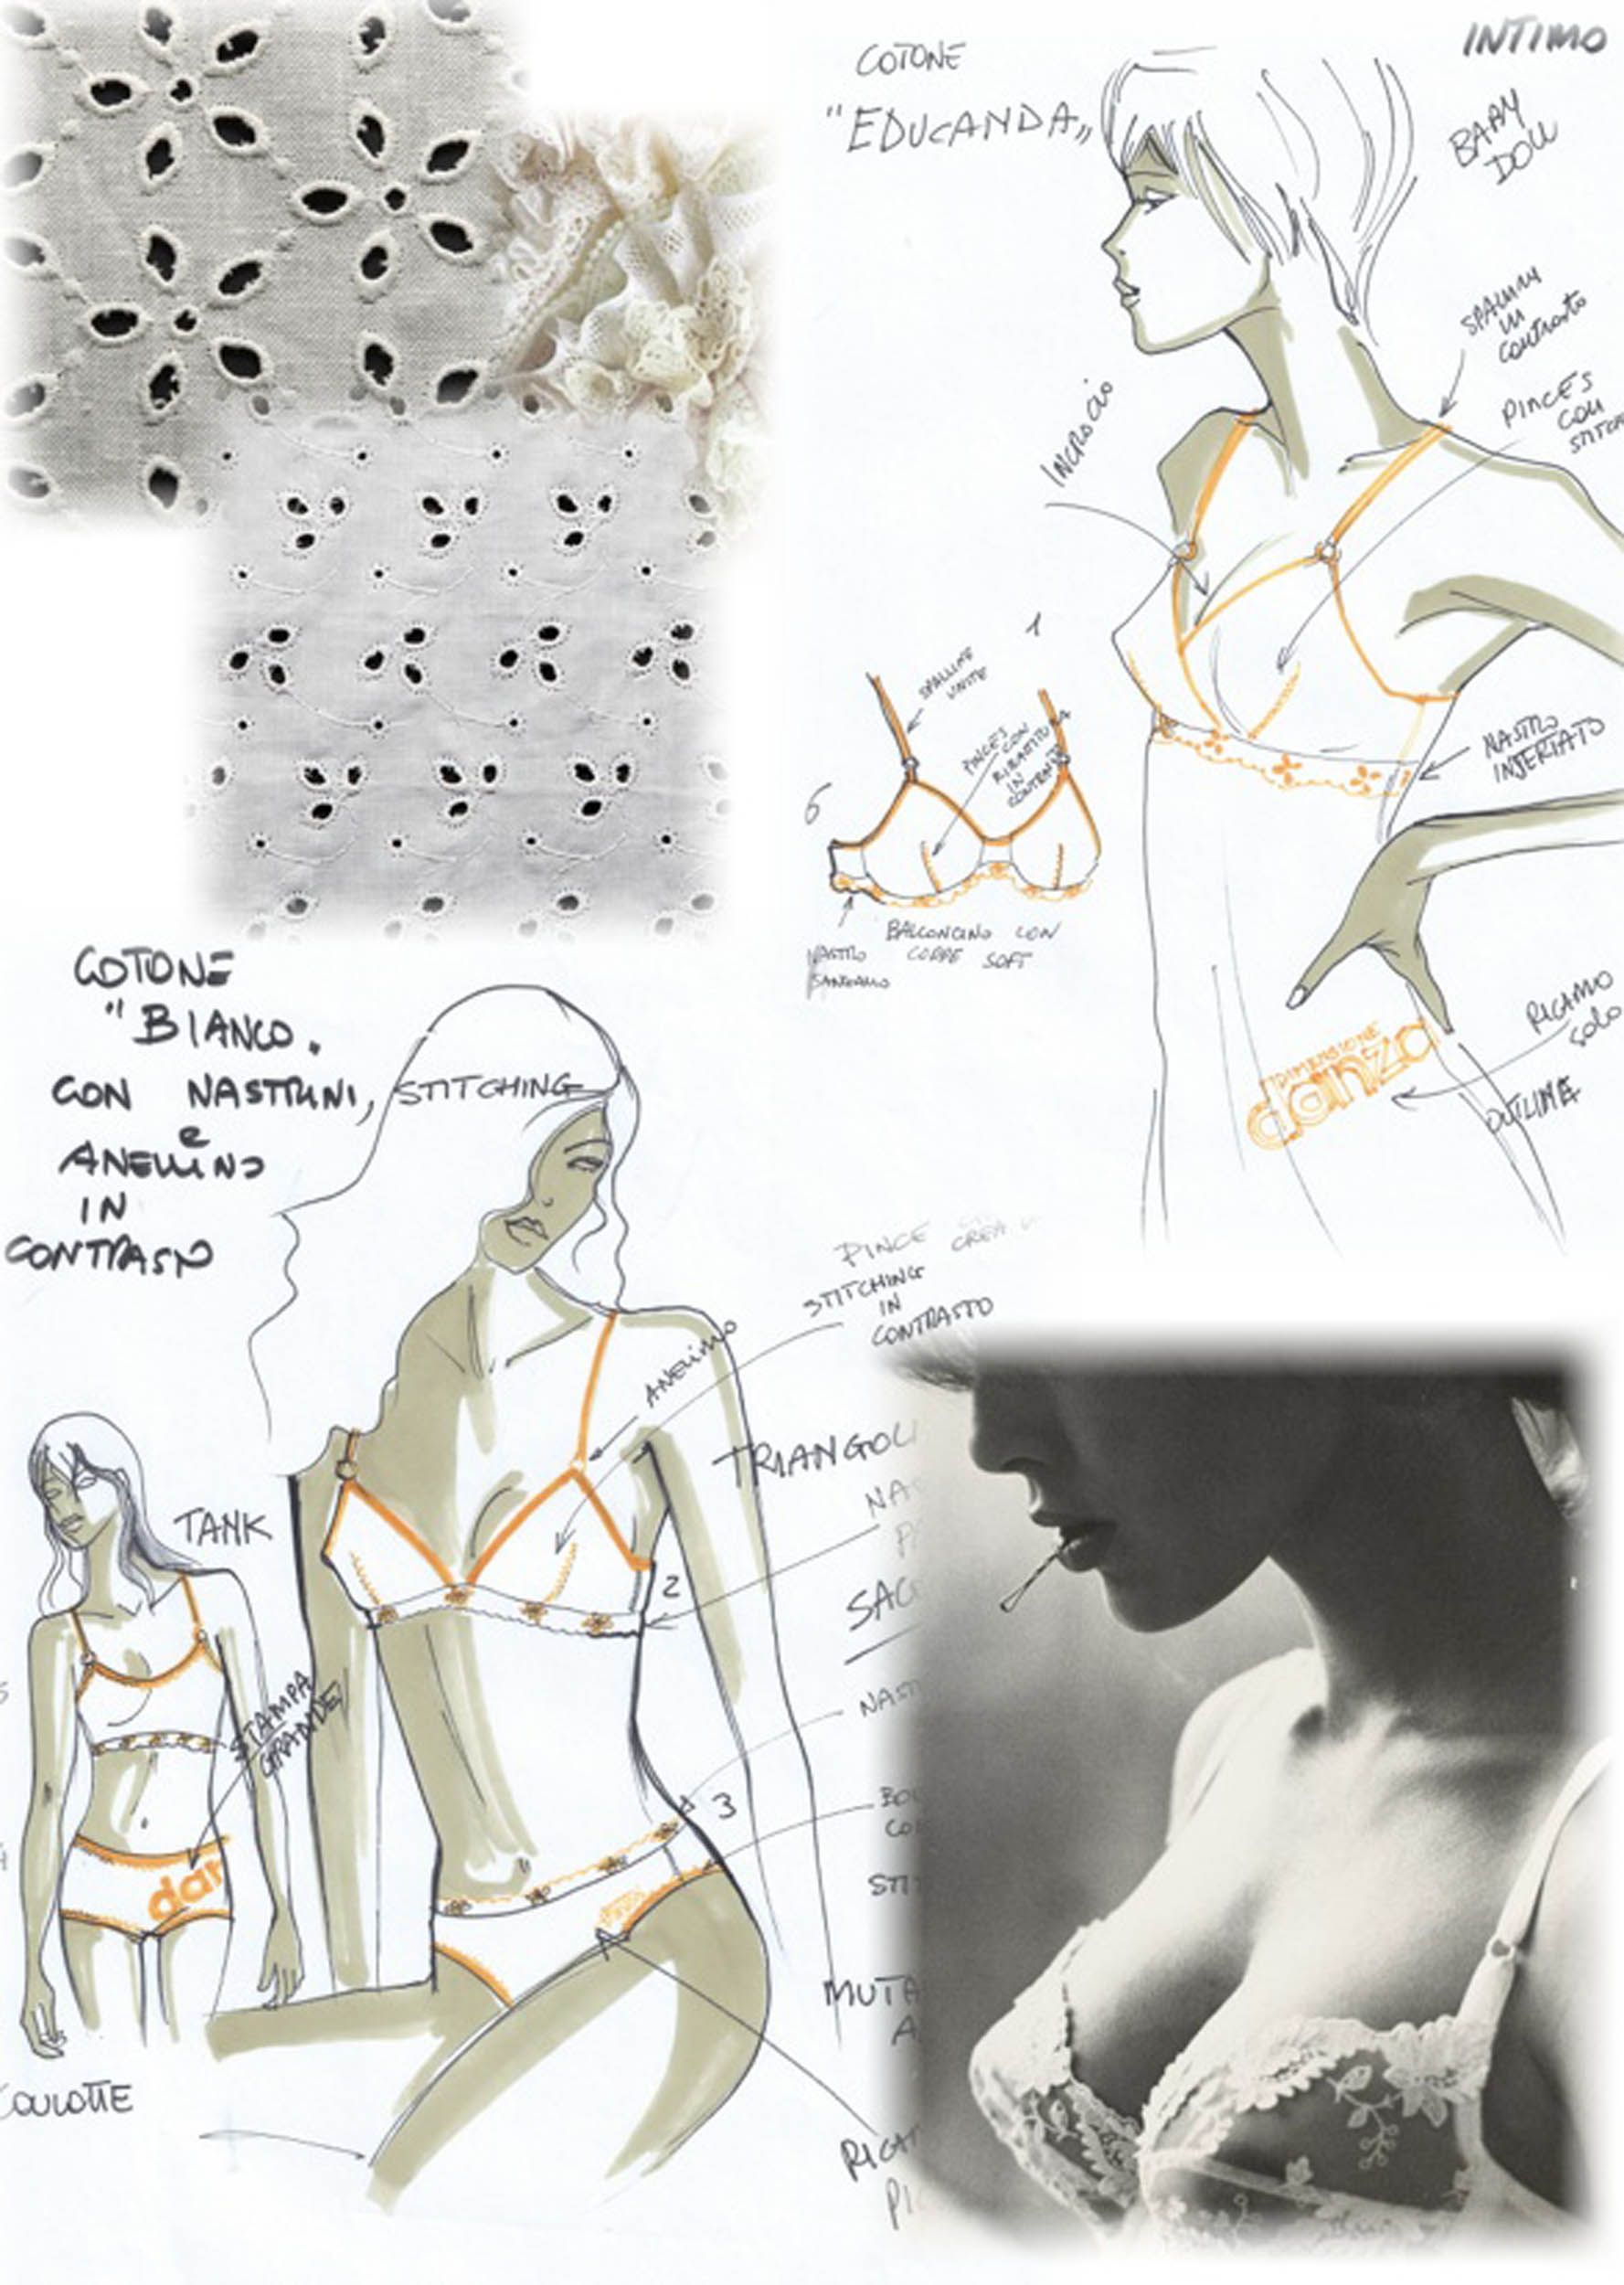 INTIMO
COTONE
"EDUCANDA"
BABY
DOLL
SPALLINI
IN
CONTRASTO
PINCES
CON
STITCH
INCROCIO
1
SPALLINE
UNITE
PINCES
CON
RIBATTITURA
IN
CONTRASTO
6
NASTRO
INSERTATO
BALCONCINO CON
COPPE SOFT
NASTRO
SANGALLO
RICAMO
SOLO
OUTLINE
DIMENSIONE
danza
COTONE
"BIANCO.
CON NASTRINI, STITCHING
e
ANELLINO
IN
CONTRASTO
PINCE CREA
STITCHING
IN
CONTRASTO
ANELLINO
TRIANGOLI
NAS
2
TANK
STAMPA
GRANDE
NAST
3
BO
CO
STI
dan
MUTA
A
COULOTTE
RICA